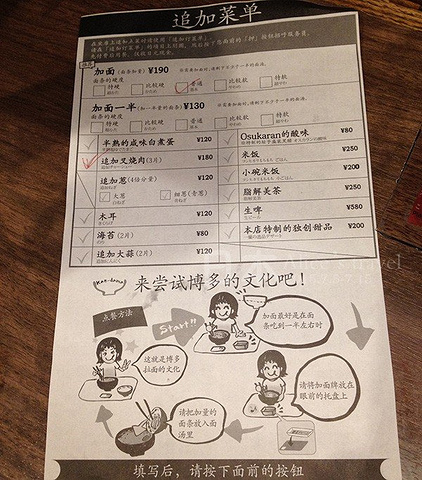 追加菜单
加面 (面条加量) ¥190
面条的硬度
特硬
比较硬
普通
比较软
特软
加面一半 (加一半量的面条) ¥130
面条的硬度
特硬
比较硬
普通
比较软
特软
半熟的咸味白煮蛋 ¥120
追加叉烧肉(3片) ¥180
追加葱(4倍分量) ¥120
大葱
细葱(青葱)
木耳 ¥120
海苔(2片) ¥80
追加大蒜(2片) ¥120
Osukaran的酸味 ¥80
米饭 ¥250
小碗米饭 ¥200
脂解美茶 ¥250
生啤 ¥580
本店特制的独创甜品 ¥200
来尝试博多的文化吧！
点餐方法
Start!!
加面最好是在面
条吃到一半左右时
请将加面牌放在
眼前的托盘上
请把加量的
面条放入面
汤里
这就是博多
拉面的文化
填写后，请按下面前的按钮